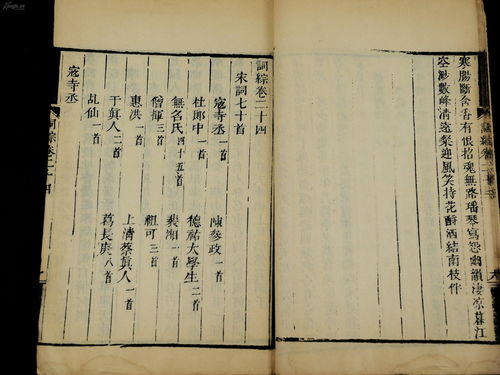 寒腸斷含香有恨招魂無路瑶琴寫怨幽韻淒凉暮江
空渺數峰清遠粲迎風笑持花酹酒結南枝伴
詞綜卷二十四
宋詞七十首
寇寺丞一首
陳參政一首
杜郎中一首
德祐太學生二首
無名氏四十五首
裴湘一首
僧揮三首
祖可三首
惠洪一首
上清蔡真人一首
于真人二首
葛長庚八首
乩仙一首
寇寺丞
詞綜卷二十四